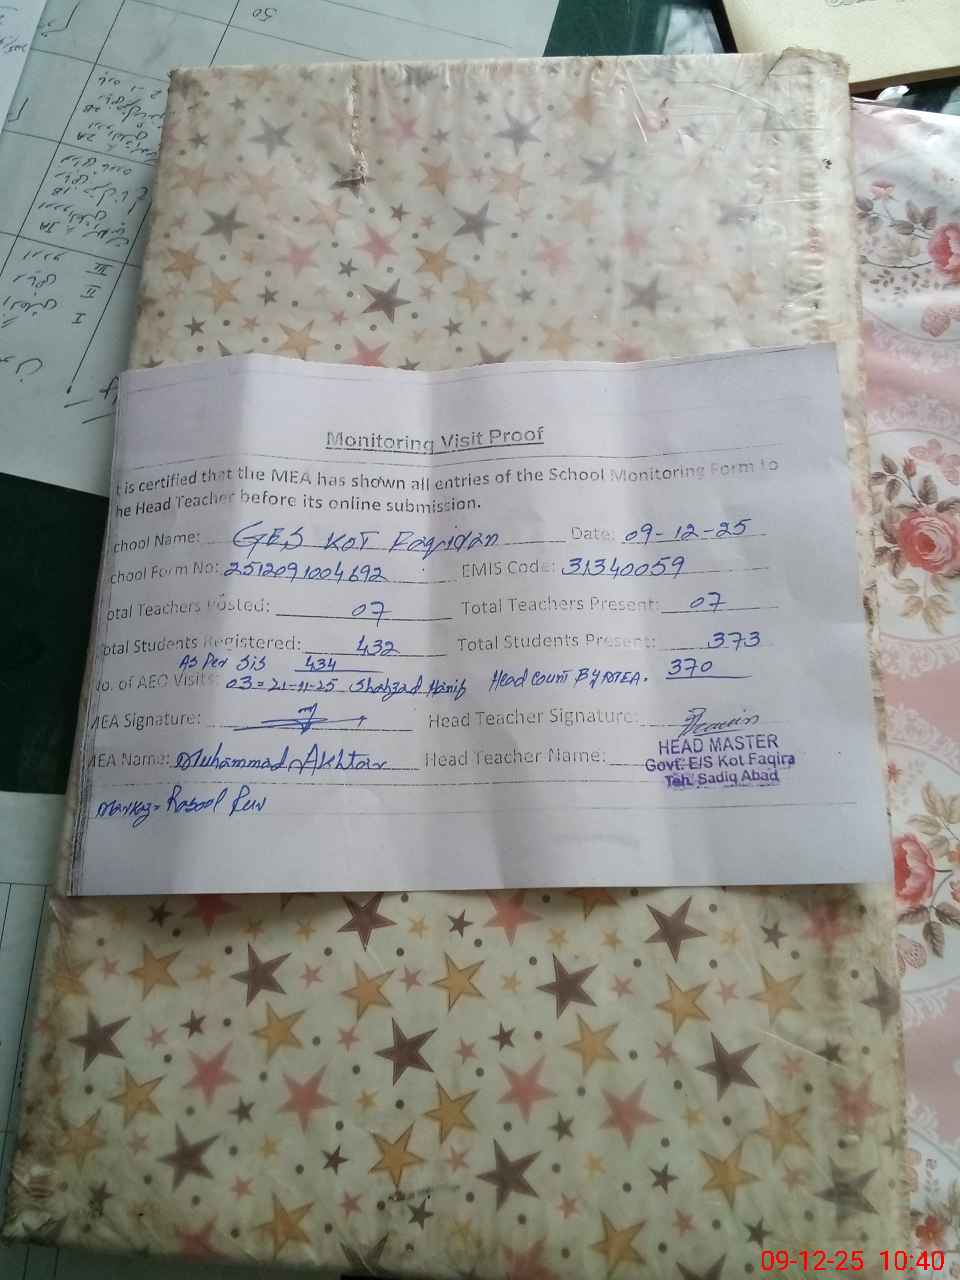 50
Monitoring Visit Proof
t is certified that the MEA has shown all entries of the School Monitoring Form to
he Head Teacher before its online submission.
chool Name: GES Kot Faqiran Date: 09-12-25
chool Form No: 2512091004692 EMIS Code: 31340059
otal Teachers Posted: 07 Total Teachers Present: 07
otal Students Registered: 432 Total Students Present: 373
As Per Sis 434
No. of AEO Visits: 03 = 21-11-25 Shahzad Hanif Head Count By MEA. 370
MEA Signature: Head Teacher Signature:
MEA Name: Muhammad Akhtar Head Teacher Name:
HEAD MASTER
Govt. E/S Kot Faqira
Teh. Sadiq Abad
Markaz = Rasool Pur
09-12-25 10:40